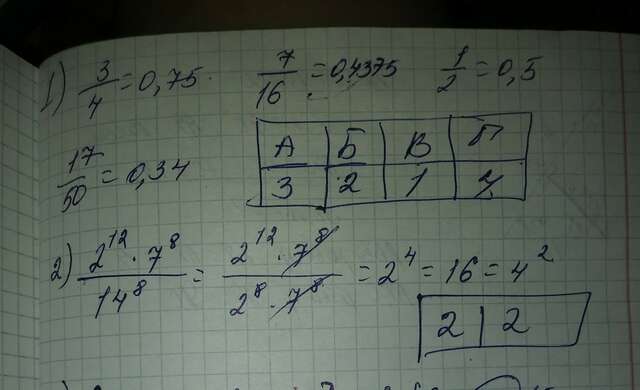 1) 3/4 = 0,75 7/16 = 0,4375 1/2 = 0,5
17/50 = 0,34
А Б В Г
3 2 1
2) 2^12 · 7^8 / 14^8 = 2^12 · 7^8 / 2^8 · 7^8 = 2^4 = 16 = 4^2
2 2